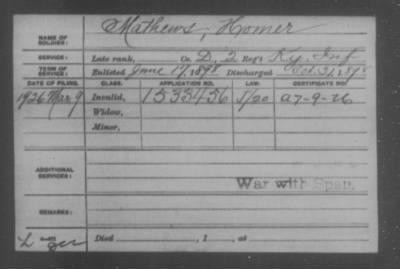 NAME OF SOLDIER: Mathews, Homer
SERVICE: Late rank, Co. D, 2 Reg't Ky. Inf
TERM OF SERVICE: Enlisted June 17, 1898 Discharged Oct. 31, 1898
DATE OF FILING. CLASS. APPLICATION NO. LAW. CERTIFICATE NO.
1926 Mar 9 Invalid, 1535456 5/20 A7-9-26
Widow,
Minor,
ADDITIONAL SERVICES:
War with Spain.
REMARKS:
Died , 1 , at